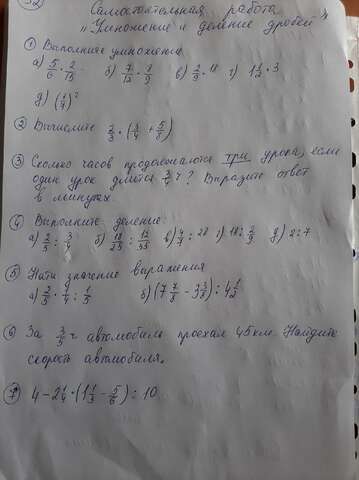 32
Самостоятельная работа
"Умножение и деление дробей"
① Выполните умножение
а) 5/6 · 2/15 б) 7/12 · 8/9 в) 2/9 · 18 г) 1 1/2 · 3
д) (1/7)²
② Вычислите 2/3 · (3/4 + 5/8)
③ Сколько часов продолжаются три урока, если
один урок длится 3/4 ч? Выразите ответ
в минутах
④ Выполните деление:
а) 2/5 : 3/4 б) 18/25 : 12/35 в) 4/7 : 28 г) 18 : 2/9 д) 2 : 7
⑤ Найти значение выражения
б) (7 7/8 - 3 3/8) : 4 1/2
⑥ За 3/5 ч автомобиль проехал 45 км. Найдите
скорость автомобиля.
⑦ 4 - 2 1/4 · (1 1/3 - 5/6) : 10